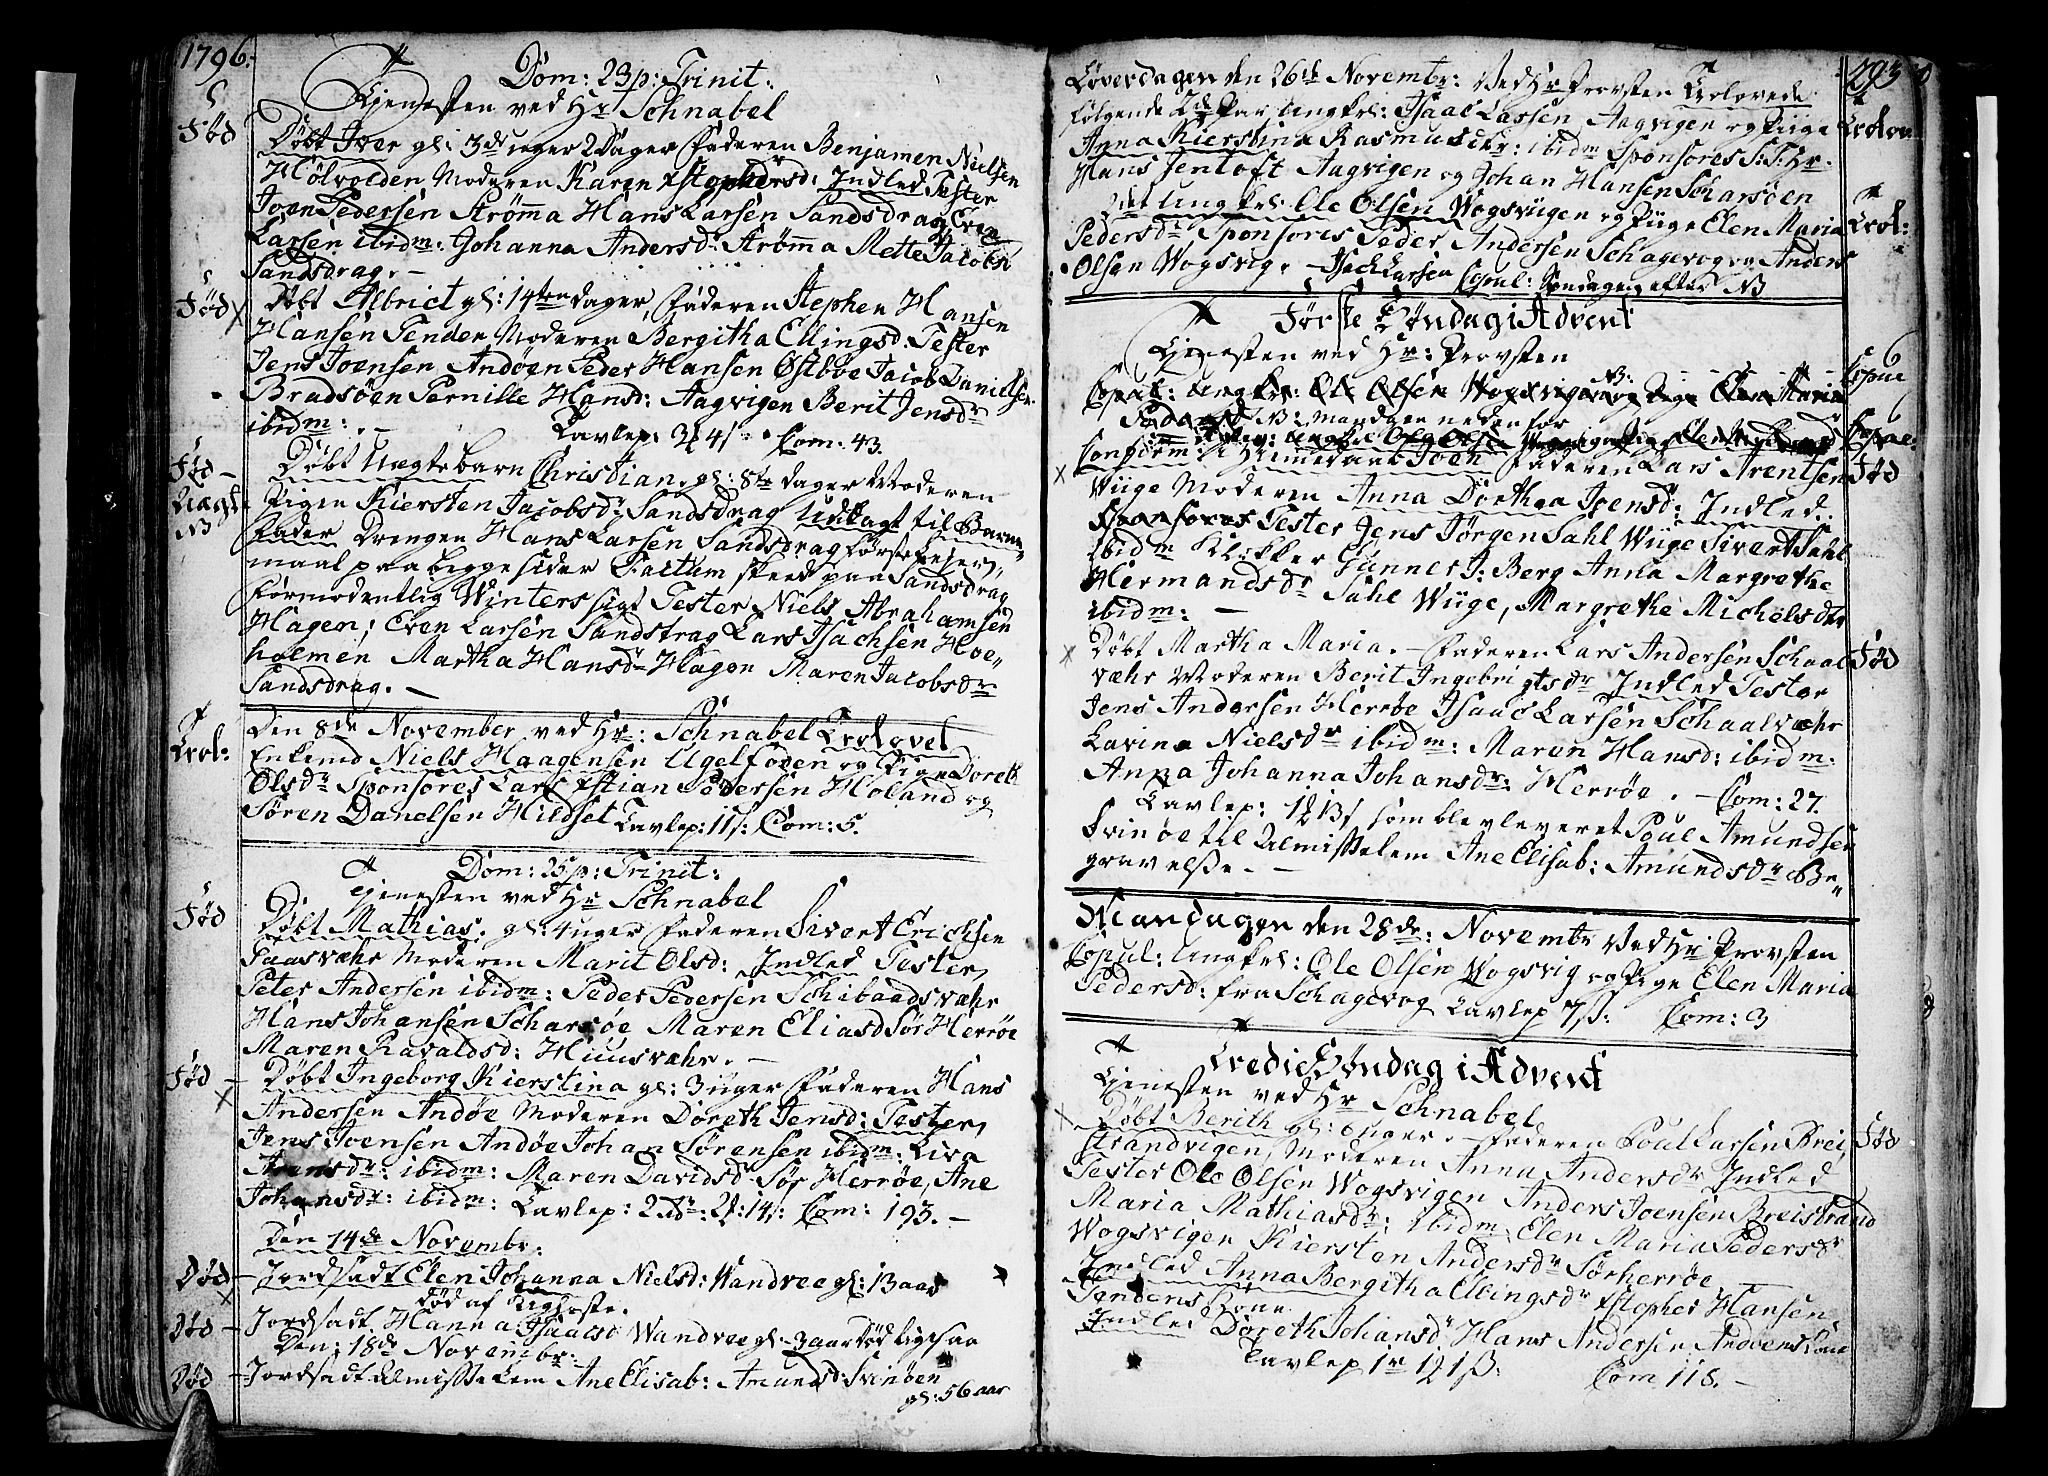 1796.
Dom: 23 p: Trinit:
Tjenesten ved Hr Schnabel
Fød
Døbt Iver gl: 3de uger 2 Dager Faderen Benjamen Nielsen
Hølvolden Moderen Karen Xstophersd: Indled Tester
Joen Pedersen Strømma Hans Larsen Sandsdrag Even
Larsen ibidm: Johanna Andersdr Strømma Mette Jacobsd
Sandsdrag. –
Fød
Døbt Albrict gl: 14ten dager, Faderen Stephen Hansen
Hansen Tenden Moderen Bergitha Ellingsd: Tester
Jens Joensen Andøen Peder Hansen Østbøe Jacob Danielsen
Bradsøen Pernille Hansd: Aagvigen Berit Jensdr
ibidm: . – Tavlep: 3 4 Com: 43.
Fød – Uægte NB
Døbt Uægte barn Christian. gl: 8te dager Moderen
Pigen Kiersten Jacobsdr Sandsdrag Udlagt til Barne
Fader Drengen Hans Larsen Sandsdrag første Lejer,,
maal paa begge sider Factum skeed paa Sandsdrag
formodentlig Winters sigt Tester Niels Abrahamsen
Hagen; Even Larsen Sandstrag Lars Isachsen Hoe,,
holmen Martha Hansdr Hagen Maren Jacobsdr
Sandsdrag. –
Trol:
Den 8de November ved Hr: Schnabel Trolovet
Enkemd Niels Haagensen Ugelfoden og Pige Doreth
Olsdr Sponsores Lars Xstian Pedersen Holand og
Søren Danelsen Hildset Tavlep: 11 s: Com: 5.
Dom: 25 p: Trinit:
Tjenesten ved Hr Schnabel
Fød
Døbt Mathias. gl: 4 uger Faderen Sivert Erichsen
Taasvæhr Moderen Marit Olsd: Indled Tester,
Peter Andersen ibidm: Peder Pedersen Schibaadsvæhr
Hans Johansen Scharsøe Maren Eliasd Sør Herrøe
Maren Ravaldsd: Huusvæhr. –
Fød –
Døbt Ingeborg Kierstina gl: 3 uger Faderen Hans
Andersen Andøe Moderen Doreth Jensd: Tester,
Jens Joensen Andøe Johan Sørensen ibidm: Liva
Arensdr: ibidm: Maren Davidsd Sør Herrøe, Ane
Johansdr: ibidm: Tavlep: 2 dr: 2 : 14 s: Com: 193. –
Den 14de Novembr:
Død –
Jordfadt Elen Johanna Nielsd: Wandvee gl: 13 aar
død af Kighoste.
Død –
Jordfadt Hanna Isaacsd Wandvee gl: 3 aar Død ligesaa
Den: 18de Novembr:
Død –
Jordfadt Almisselem Ane Elisab: Amundsd: Svinøen
gl: 56 aar
293
Løverdagen den 26de Novembr: Ved Hr Provsten Trolovede
følgende 2de Par, Ungkrl: Isaac Lassen Aagvigen og Piige
Anna Kierstina Rasmusdtr: ibidm Sponsores S: T: Hr.
Hans Jentoft Aagvigen og Johan Hansen Scharsøen
Trolov
2det Ungkrl: Ole Olsen Wogsviigen og Piige Elen Maria
Trol:
Pedersdr Sponsores Peder Andersen Schagevog og Anders
Olsen Wogsvig. – Isach Larsen Copul: Søndagen efter NB
Første Søndag i Advent
Tjenesten ved Hr: Provsten
Copul
Copul: Ungkr: Ole Olsen Wogsvigen og Pige Elen Maria
Pedersd NB: Mandagen nedenfor
Copul:
Confirm: Hiemedøbt Joen Faderen Lars Arentsen
Fød
Wiige Moderen Anna Dorthea Joensd: Indled.
Sponsores Tester Jens Jørgen Sahl Wiige Sivert Sahl
ibidm Klokker Gunner J: Berg Anna Margrethe
Hermandsdr Sahl Wiige, Margrethe Michelsdtr
ibidm: –
Døbt Martha Maria. – Faderen Lars Andersen Schaal
Fød
væhr Moderen Berit Ingebrigtsdr Indled Tester
Jens Andersen Herrøe Isaac Larsen Schaalvæhr
Lavina Nielsdr ibidm: Maren Hansd: ibidm.
Anna Johanna Johansdr: Herrøe. – Com: 27.
Tavlep: 1 13 s, som blev leveret Poul Amundsen
Svinøe til Almisselem Ane Elisab: Amundsdr Be,,
gravelse. –
Mandagen den 28de: Novembr Ved Hr Provsten
Copul: Ungkrl: Ole Olsen Wogsvig og Pige Elen Maria
Pedersd: fra Schagevog Tavlep 7 s: Com: 3
Tredie Søndag i Advent
Tjenesten ved Hr Schnabel
Døbt Berith gl: 6 uger. – Faderen Poul Larsen Brei
Fød
strandvigen, Moderen Anna Andersdr Indled
Tester Ole Olsen Wogsvigen Anders Joensen Breistrand
Maria Mathiasdr: ibidm Elen Maria Pedersdr
Wogsvigen Kiersten Andersdr Sørherrøe
Indled Anna Bergitha Ellingsdr Xstopher Hansen
Tendens Kone
Indled Doreth Johansdr Hans Andersen Andøens Kone
Tavlep 1 r 1 1 s. Com 118. –